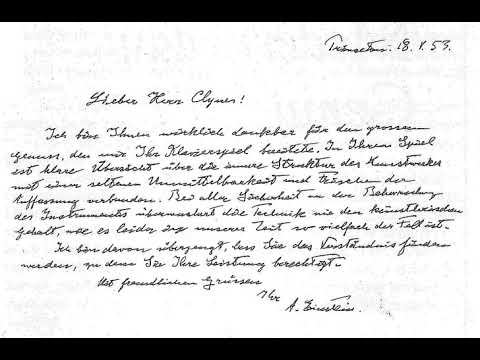 Princeton. 18. V. 53.
Lieber Herr Clynes!
Ich bin Ihnen wirklich dankbar für den grossen
Genuss, den mir Ihr Klavierspiel bereitete. In Ihrem Spiel
ist klare Übersicht über die innere Struktur des Kunstwerkes
mit einer seltenen Unmittelbarkeit und Frische der
Auffassung verbunden. Bei aller Sicherheit in der Beherrschung
des Instrumentes überwuchert die Technik nie den künstlerischen
Gehalt, wie es leider in unserer Zeit so vielfach der Fall ist.
Ich bin davon überzeugt, dass Sie das Verständnis finden
werden, zu dem Sie Ihre Leistung berechtigt.
Mit freundlichen Grüssen
Ihr
A. Einstein.